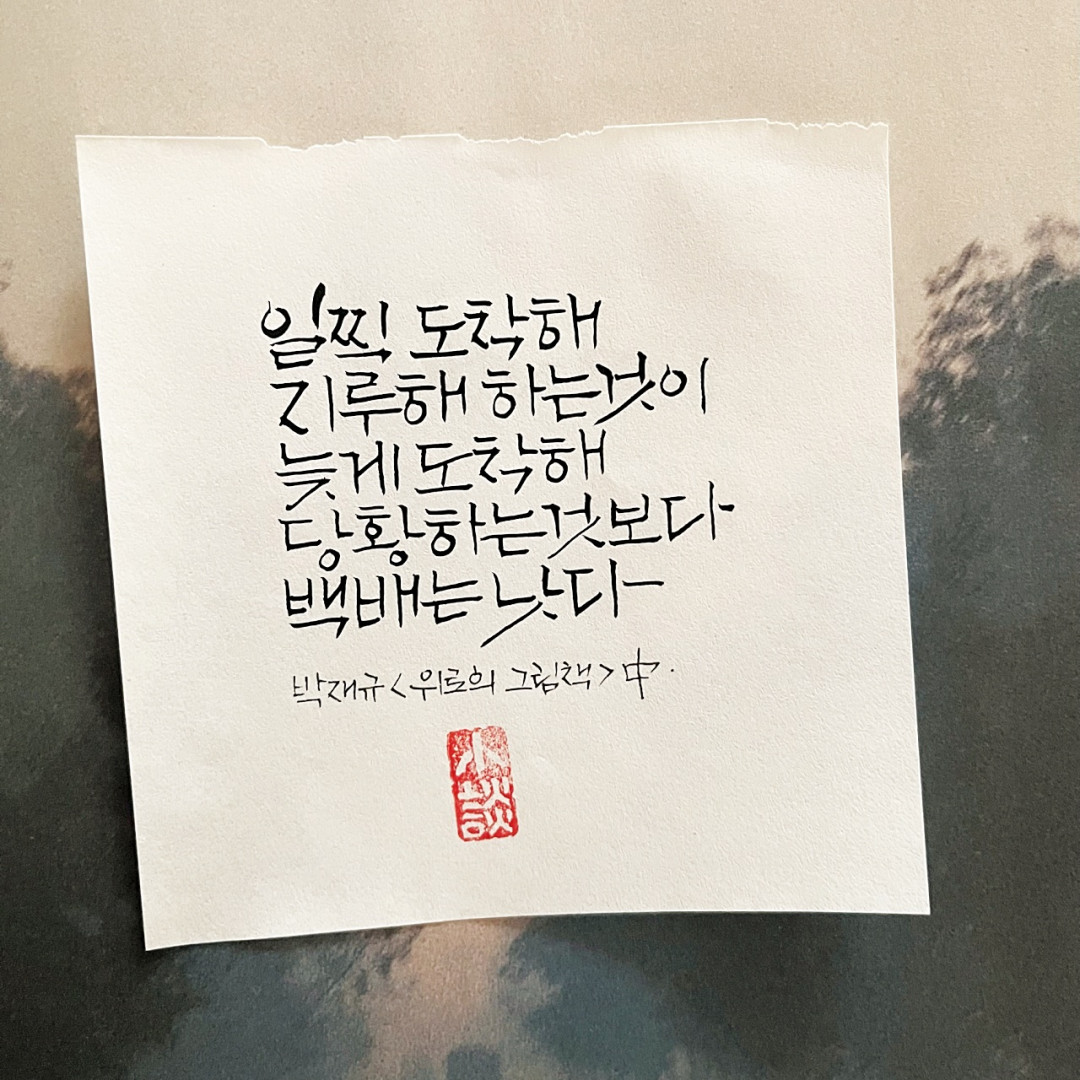 일찍 도착해
지루해 하는것이
늦게 도착해
당황하는것보다
백배는 낫다
박재규 <위로의 그림책> 中.
小
談